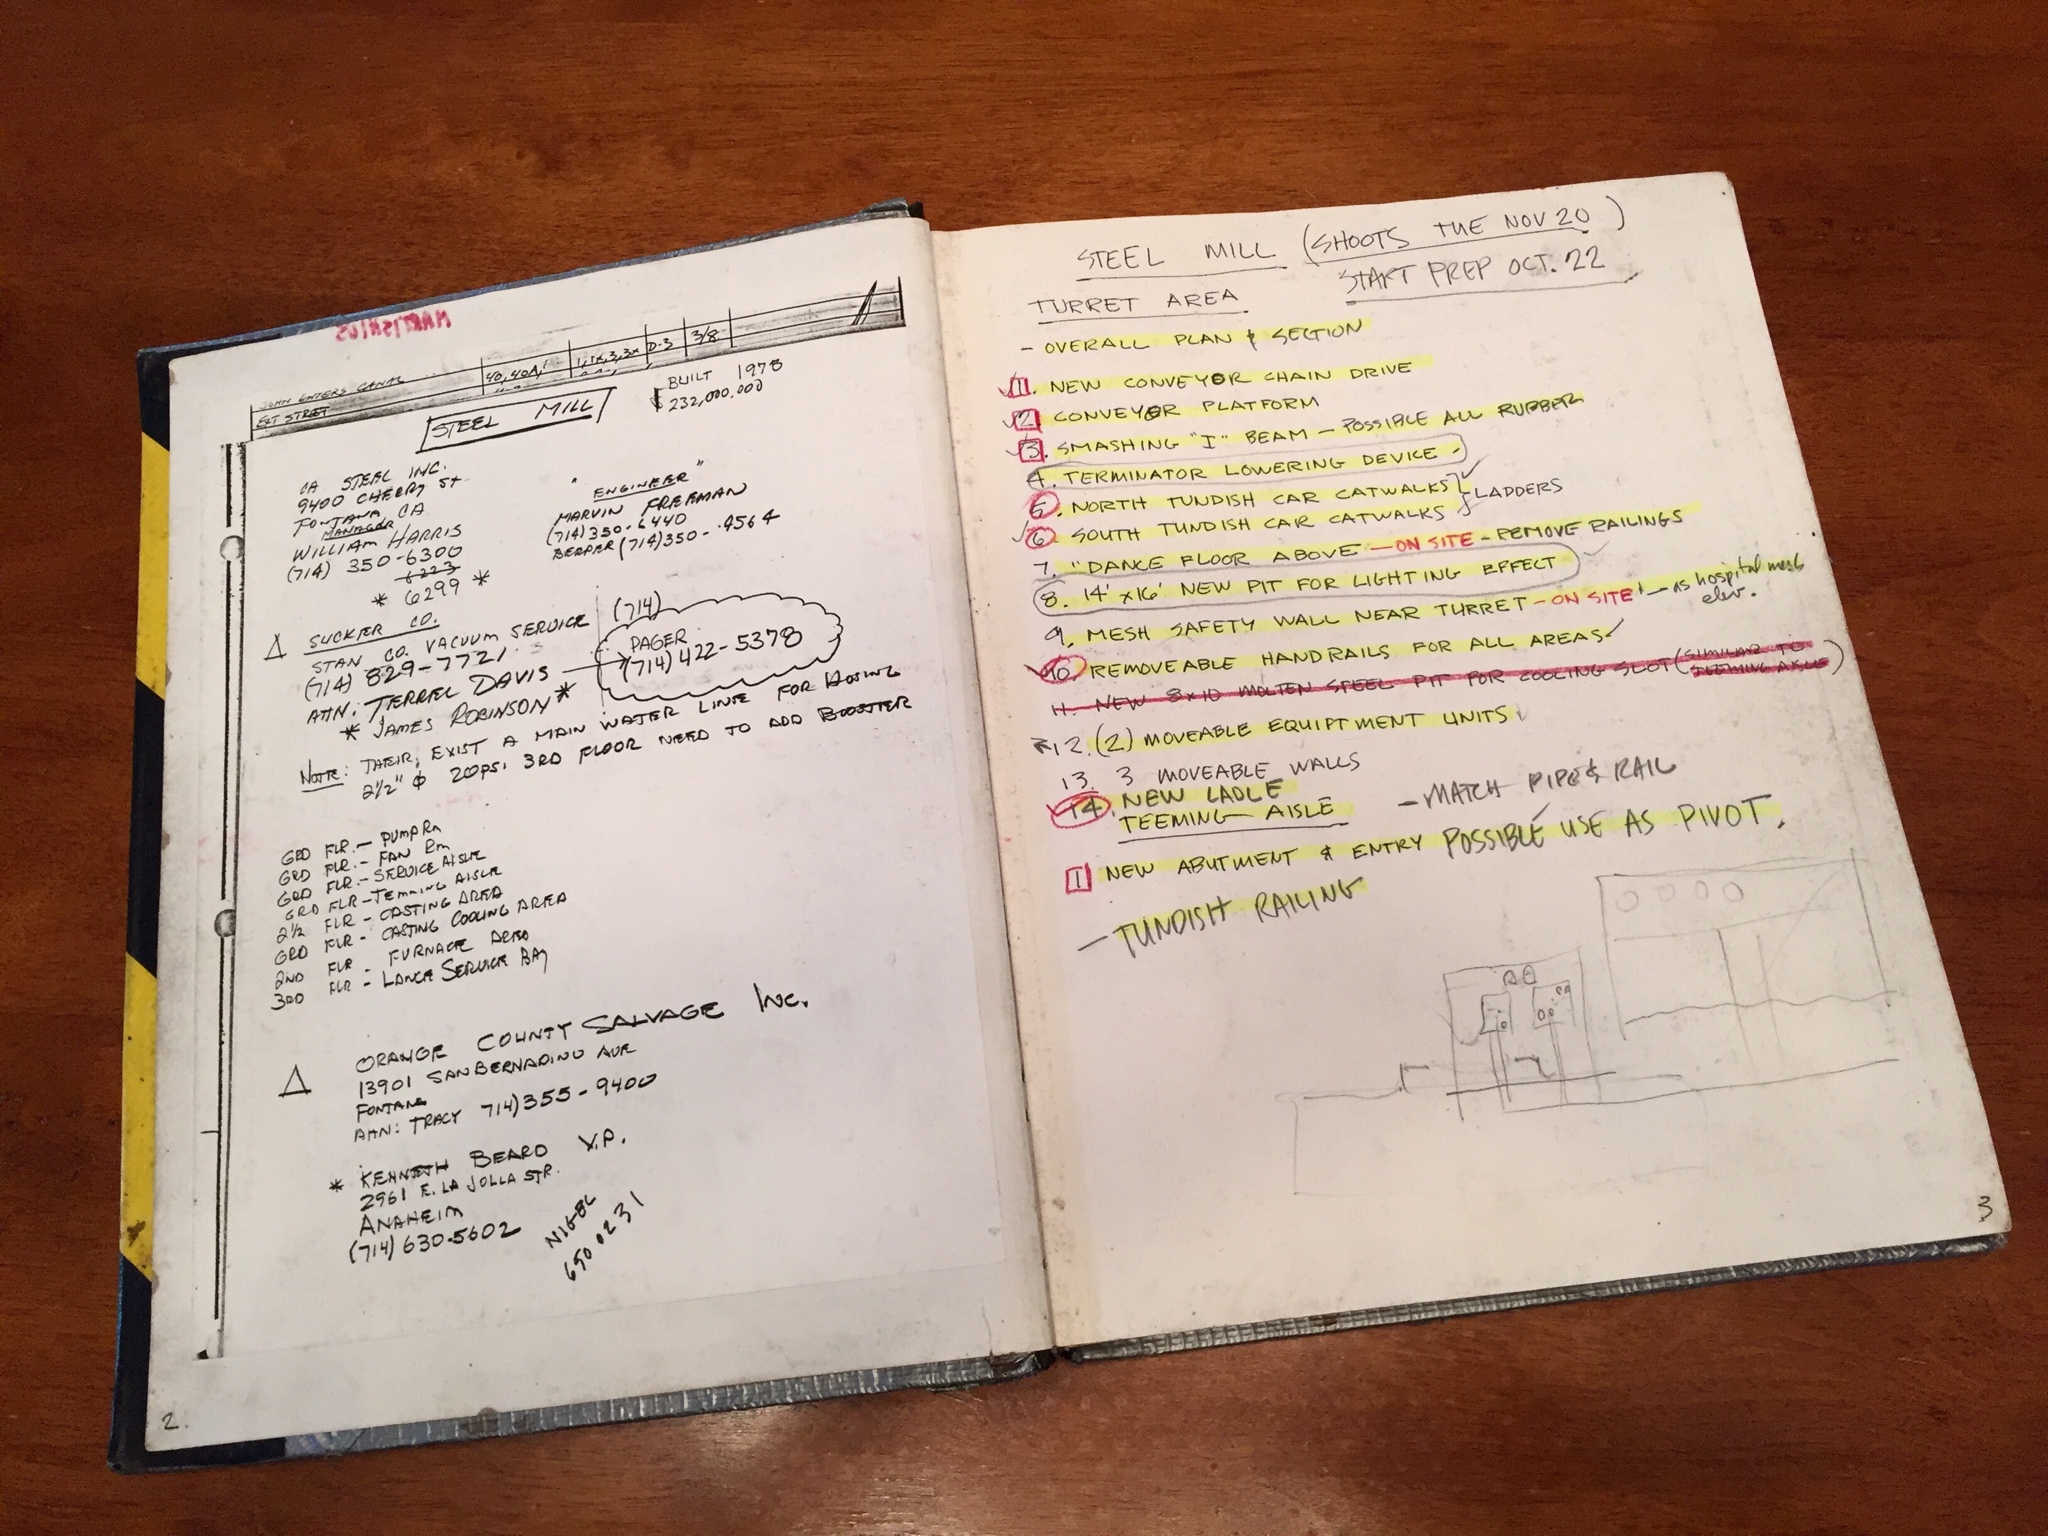 JOHN ENTERS CANAL
40, 40A,
D-3
3/8
EXT STREET
STEEL MILL
BUILT 1978
$ 232,000,000
CA STEEL INC.
9400 CHERRY St
FONTANA CA
MANAGER
WILLIAM HARRIS
(714) 350-6300
6223
* 6299 *
"ENGINEER"
MARVIN FREEMAN
(714) 350-6440
BEEPER (714) 350-4564
Δ SUCKER CO.
STAN CO. VACUUM SERVICE
(714) 829-7721
Attn: TERREL DAVIS
* JAMES ROBINSON *
(714)
PAGER
(714) 422-5378
NOTE: THEIR EXIST A MAIN WATER LINE FOR HOSING
2½" ϕ 20psi 3RD FLOOR NEED TO ADD BOOSTER
GRD FLR. - PUMP Rm
GRD FLR. - FAN Rm
GRD FLR. - SERVICE AISLE
GRD FLR - TEMMING AISLE
2½ FLR - CASTING AREA
GRD FLR - CASTING COOLING AREA
2ND FLR - FURNACE AREA
3RD FLR - LANCE SERVICE BAY
Δ ORANGE COUNTY SALVAGE INC.
13901 SAN BERNADINO AVE
FONTANA
Attn: TRACY 714) 355-9400
* KENNETH BEARD V.P.
2961 E. LA JOLLA STR.
ANAHEIM
(714) 630-5602
NIGEL
650 0231
2.
STEEL MILL (SHOOTS TUE NOV 20)
START PREP OCT. 22
TURRET AREA
- OVERALL PLAN & SECTION
1. NEW CONVEYOR CHAIN DRIVE
2. CONVEYOR PLATFORM
3. SMASHING "I" BEAM - POSSIBLE ALL RUBBER
4. TERMINATOR LOWERING DEVICE -
5. NORTH TUNDISH CAR CATWALKS
6. SOUTH TUNDISH CAR CATWALKS
LADDERS
7. "DANCE FLOOR ABOVE - ON SITE - REMOVE RAILINGS
8. 14' x 16' NEW PIT FOR LIGHTING EFFECT
9. MESH SAFETY WALL NEAR TURRET - ON SITE! - AS hospital mesh
elev.
10. REMOVEABLE HANDRAILS FOR ALL AREAS
11. NEW 8x10 MOLTEN STEEL PIT FOR COOLING SLOT (SIMILAR TO
TEEMING AISLE)
12. (2) MOVEABLE EQUIPTMENT UNITS
13. 3 MOVEABLE WALLS
14. NEW LADLE - MATCH PIPE & RAIL
TEEMING AISLE
1 NEW ABUTMENT & ENTRY POSSIBLE USE AS PIVOT.
- TUNDISH RAILING
3